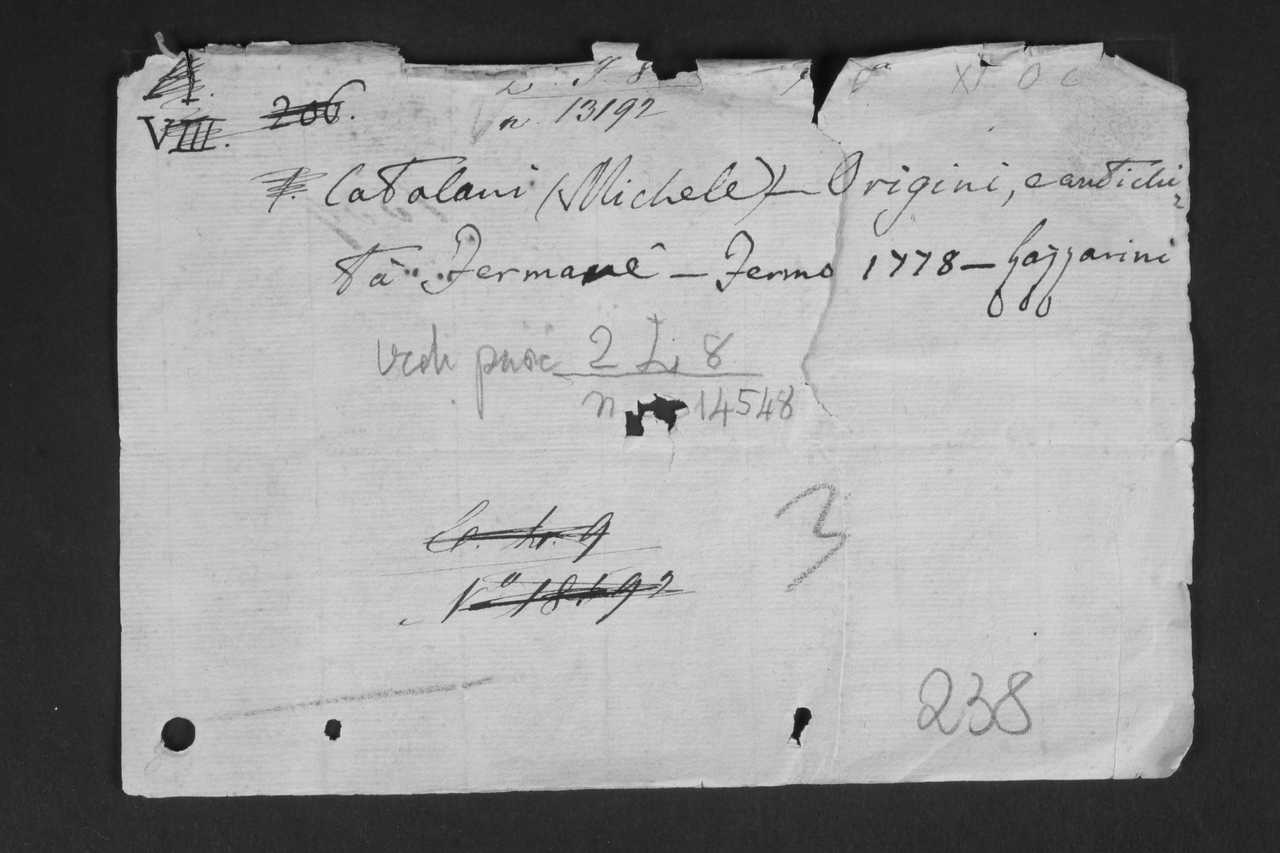 A.
VIII. 206.
n. 13192
Catalani (Michele) – Origini, e antichi-
tà Fermane – Fermo 1778 – Gazzarini
Vedi pure 2 L 8
n 14548
3
238